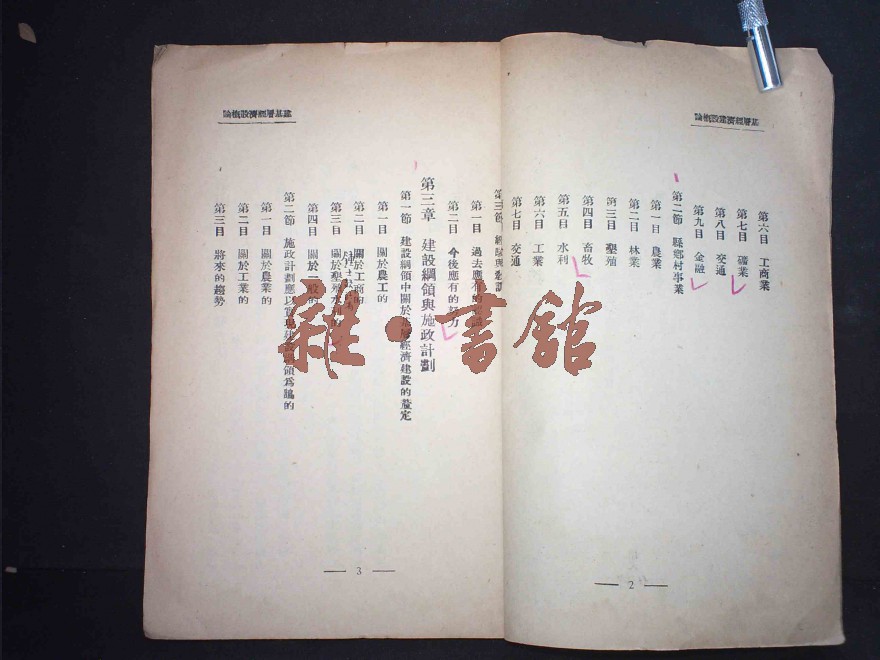 基層經濟建設概論
第六目 工商業
第七目 礦業
第八目 交通
第九目 金融
第二節 縣鄉村事業
第一目 農業
第二目 林業
第三目 墾殖
第四目 畜牧
第五目 水利
第六目 工業
第七目 交通
— 2 —
基層經濟設概論
第三節 經驗與
第一目 過去應有的
第二目 今後應有的努力
第三章 建設綱領與施政計劃
第一節 建設綱領中關於基層經濟建設的釐定
第一目 關於農工的
第二目 關於工商的
第三目 關於墾殖水利的
第四目 關於一般的
第二節 施政計劃應以實現建設綱領爲鵠的
第一目 關於農業的
第二目 關於工業的
第三目 將來的趨勢
— 3 —
雜·書館